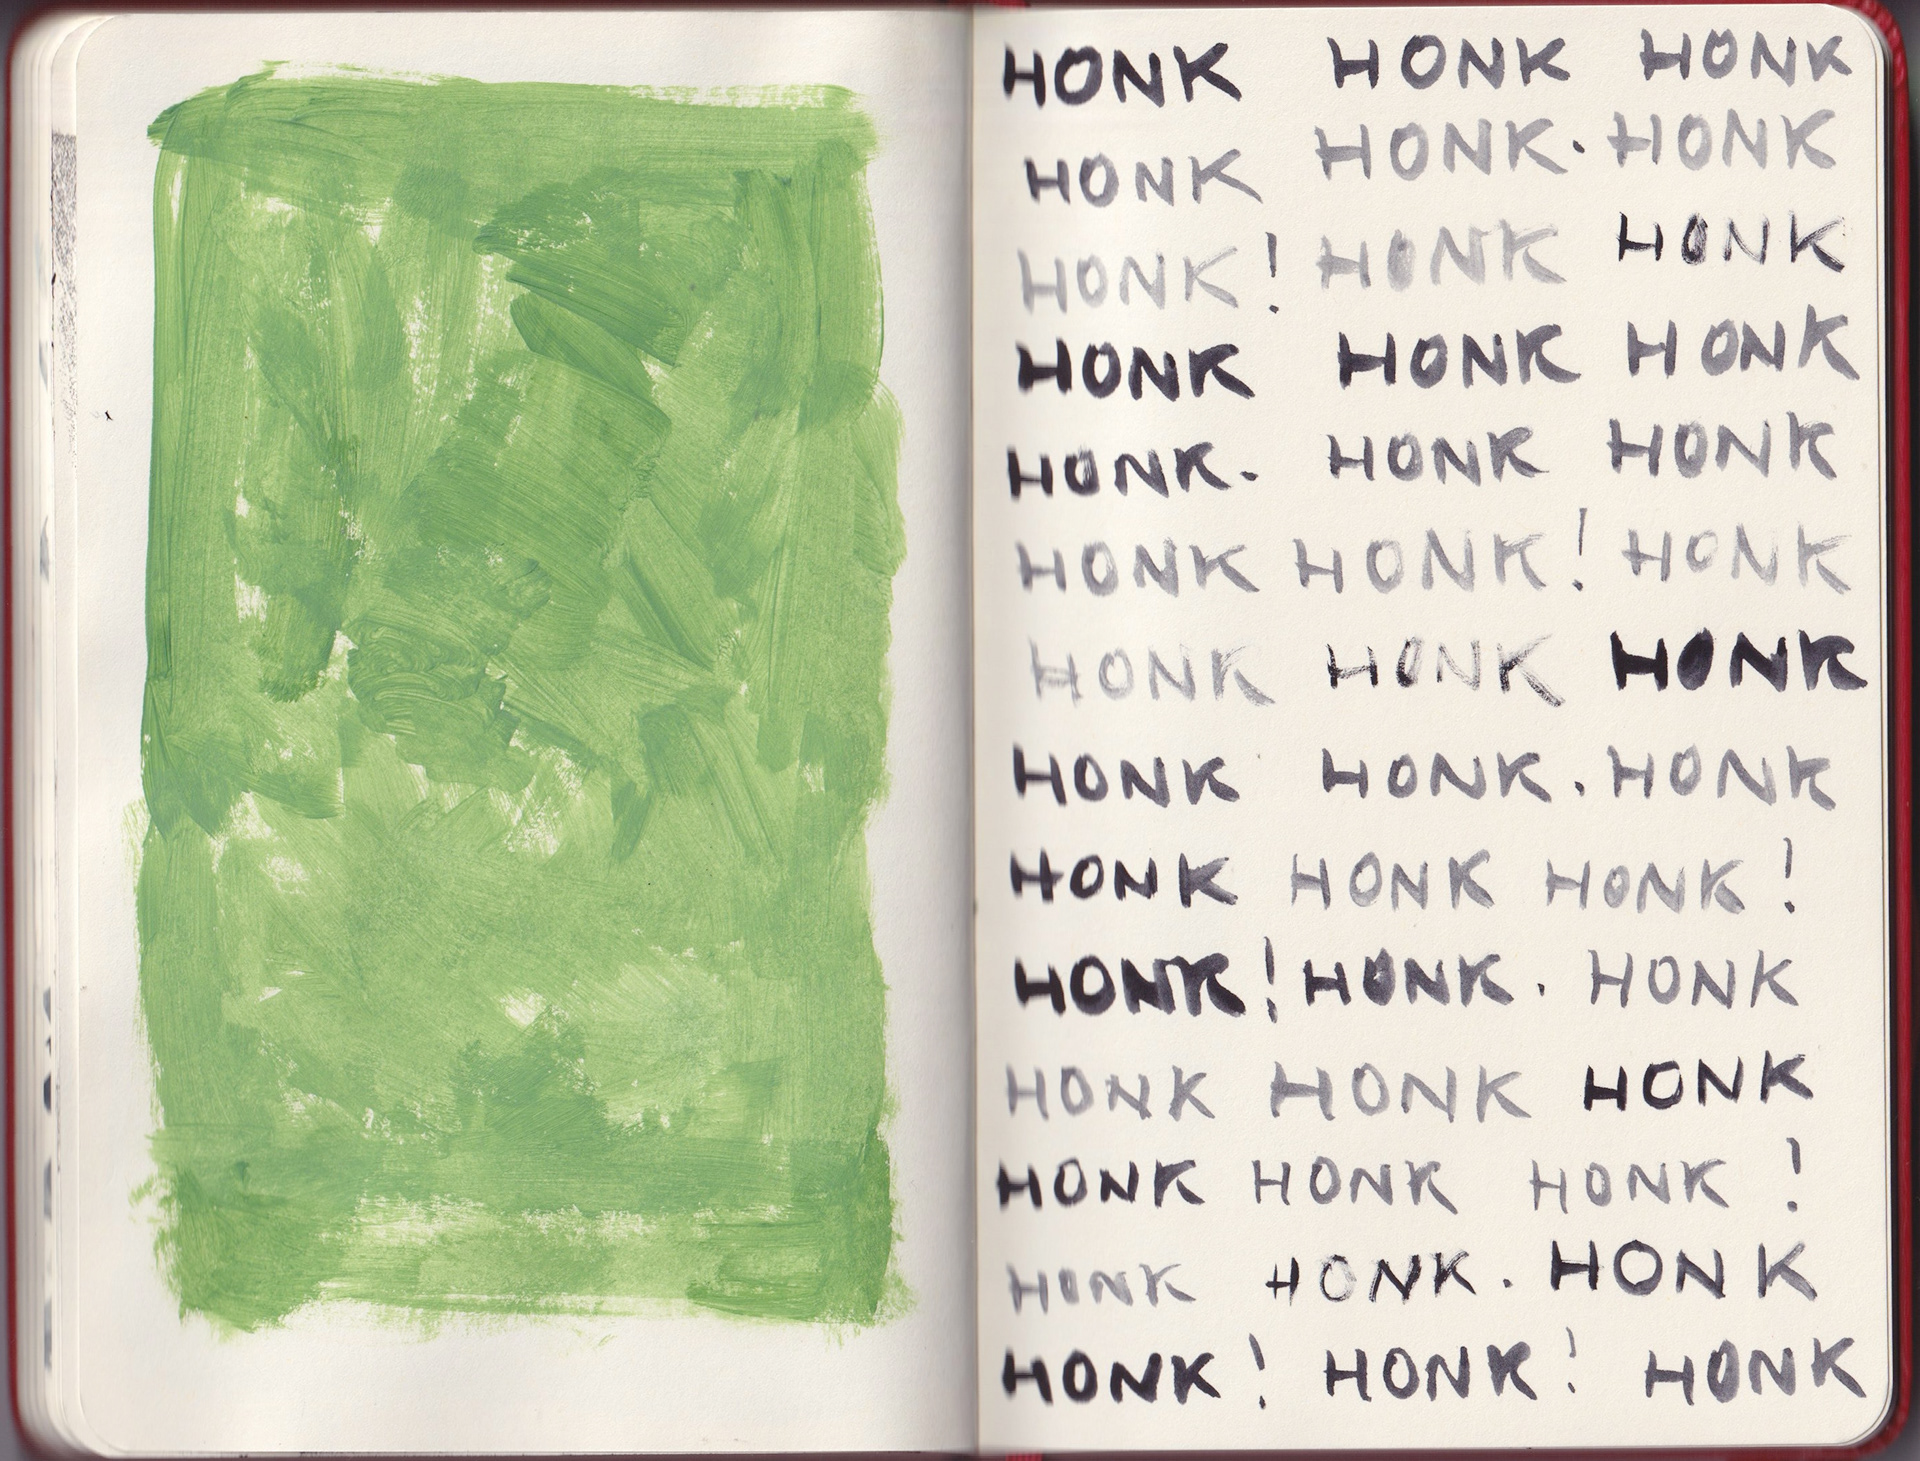 HONK HONK HONK
HONK HONK. HONK
HONK! HONK HONK
HONK HONK HONK
HONK. HONK HONK
HONK HONK! HONK
HONK HONK HONK
HONK HONK. HONK
HONK HONK HONK!
HONK! HONK. HONK
HONK HONK HONK
HONK HONK HONK!
HONK HONK. HONK
HONK! HONK! HONK